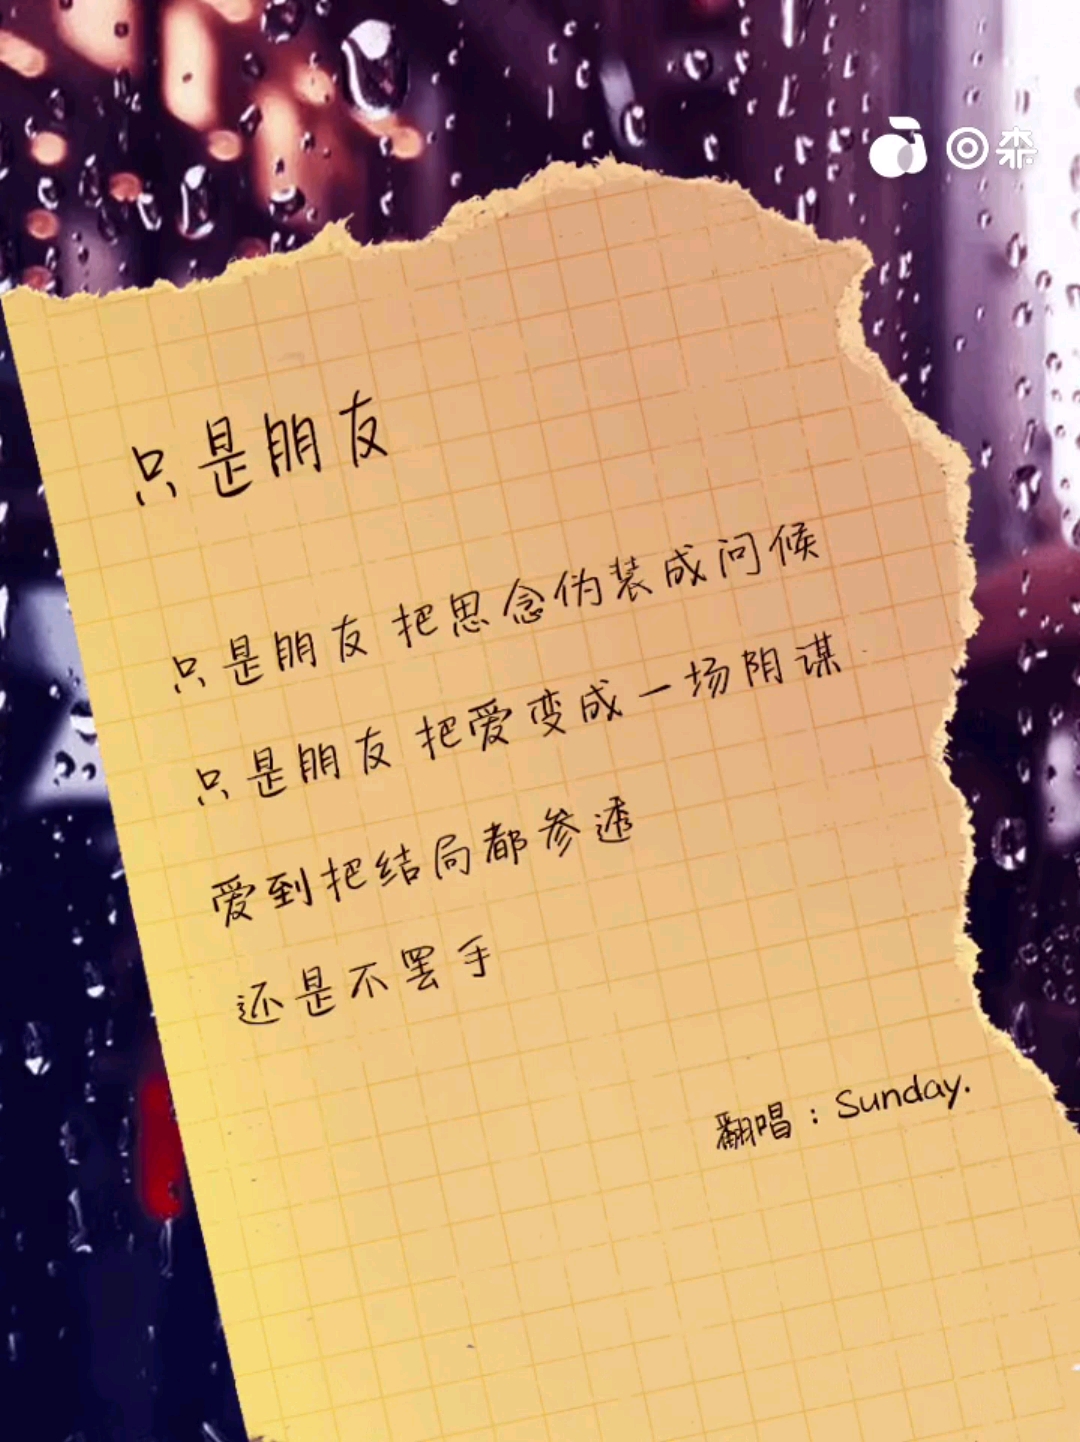 只是朋友
只是朋友 把思念伪装成问候
只是朋友 把爱变成一场阴谋
爱到把结局都参透
还是不罢手
翻唱：Sunday.